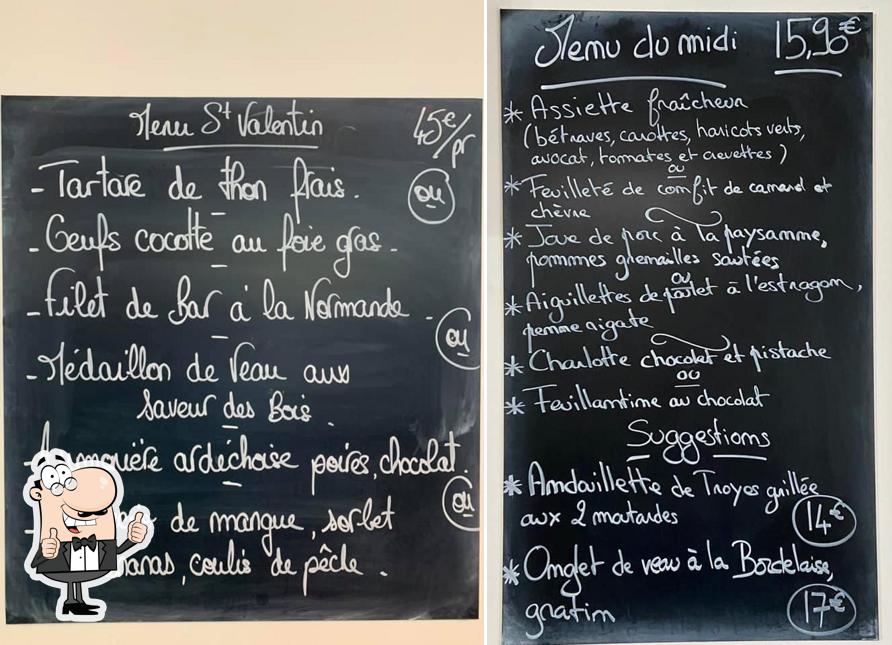 Menu St Valentin 45€/pr
- Tartare de thon frais.
ou
- Oeufs cocotte au foie gras.
- Filet de Bar à la Normande.
ou
- Médaillon de Veau aux
Saveur des Bois.
ardéchoise poires, chocolat.
ou
de mangue, sorbet
coulis de pêche.
Menu du midi 15,90€
* Assiette fraîcheur
(bétraves, carottes, haricots verts,
avocat, tomates et crevettes)
ou
* Feuilleté de confit de canard et
chèvre
* Joue de porc à la paysanne,
pommes grenailles sautées
ou
* Aiguillettes de poulet à l'estragon,
penne rigate
* Charlotte chocolat et pistache
ou
* Feuillantine au chocolat
Suggestions
* Andouillette de Troyes grillée
aux 2 moutardes 14€
* Onglet de veau à la Bordelaise,
gratin 17€